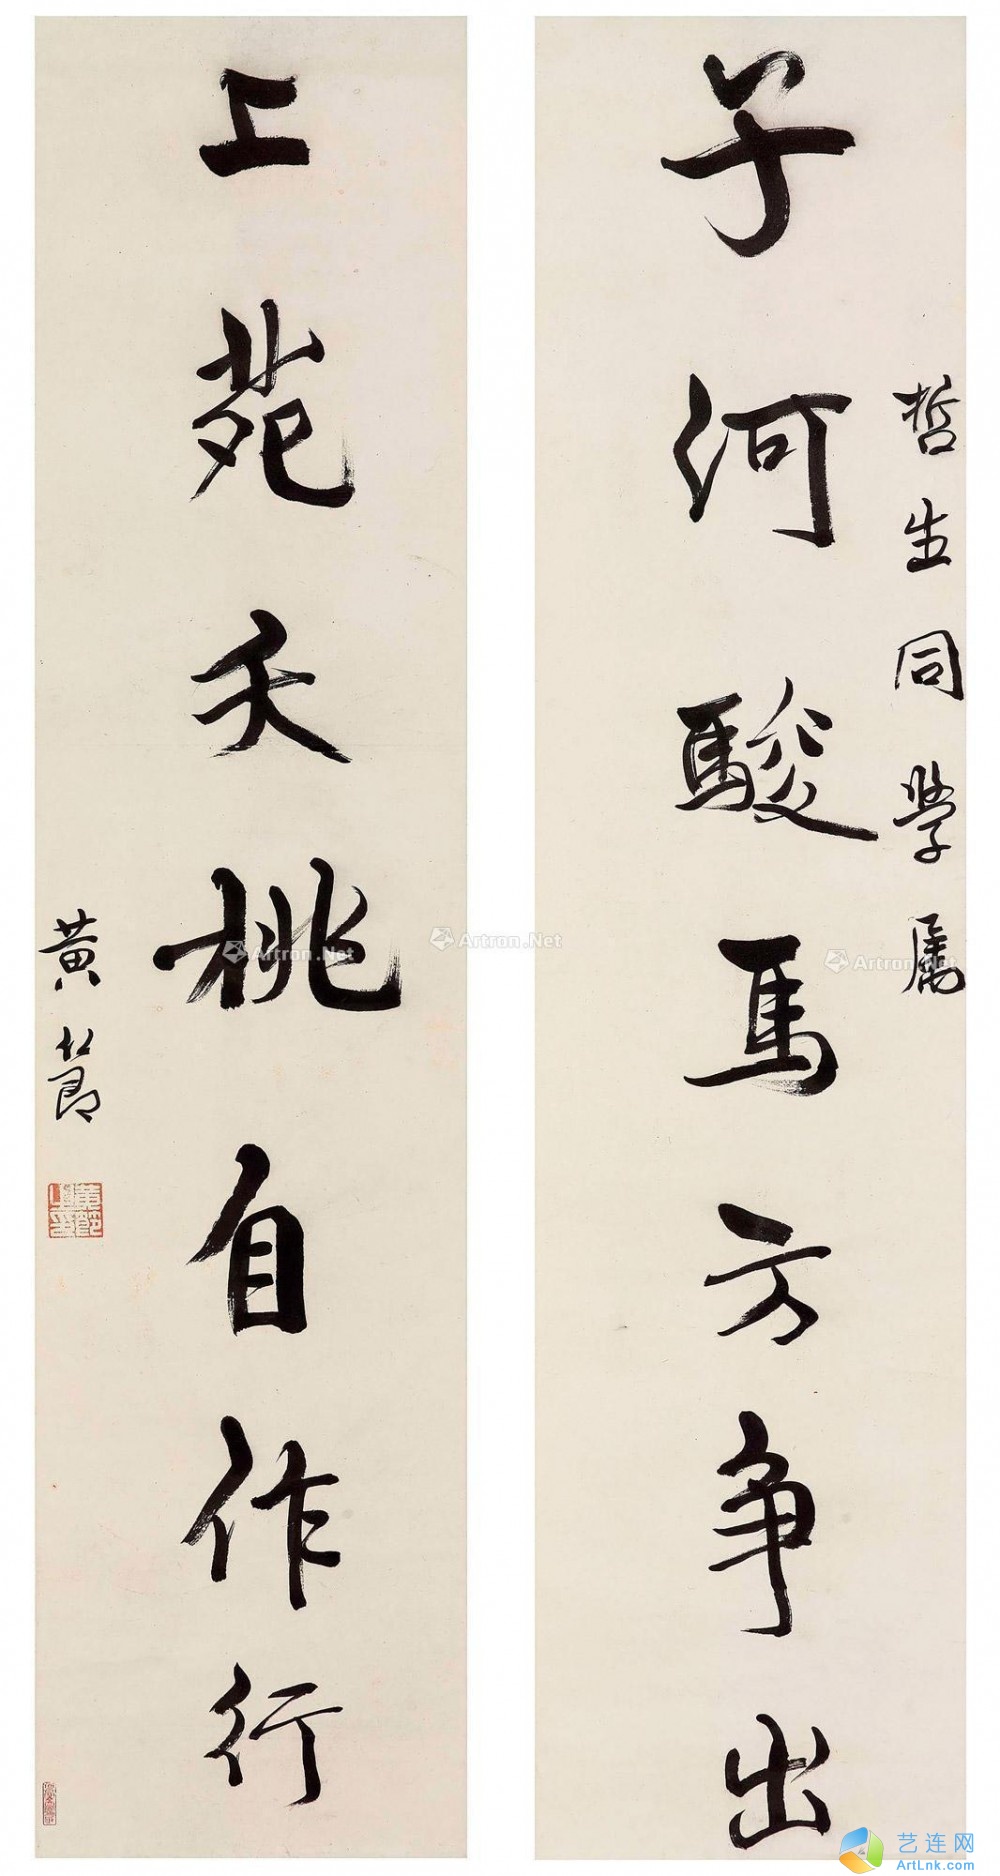 哲生同學屬
子河駿馬方争出
上苑夭桃自作行
黄節
黄節之印
Artron.Net
Artron.Net
Artron.Net
艺连网
ArtLnk.com